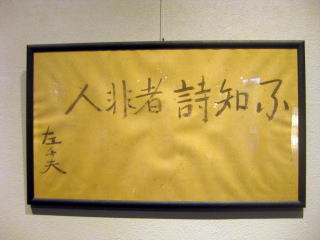 不知詩者非人
左千夫